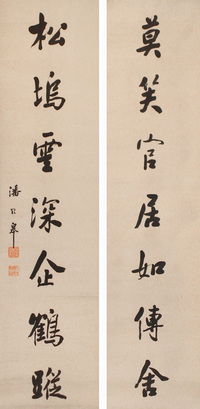 莫笑官居如傳舍
松塢雲深企鶴蹤
潘齡皋